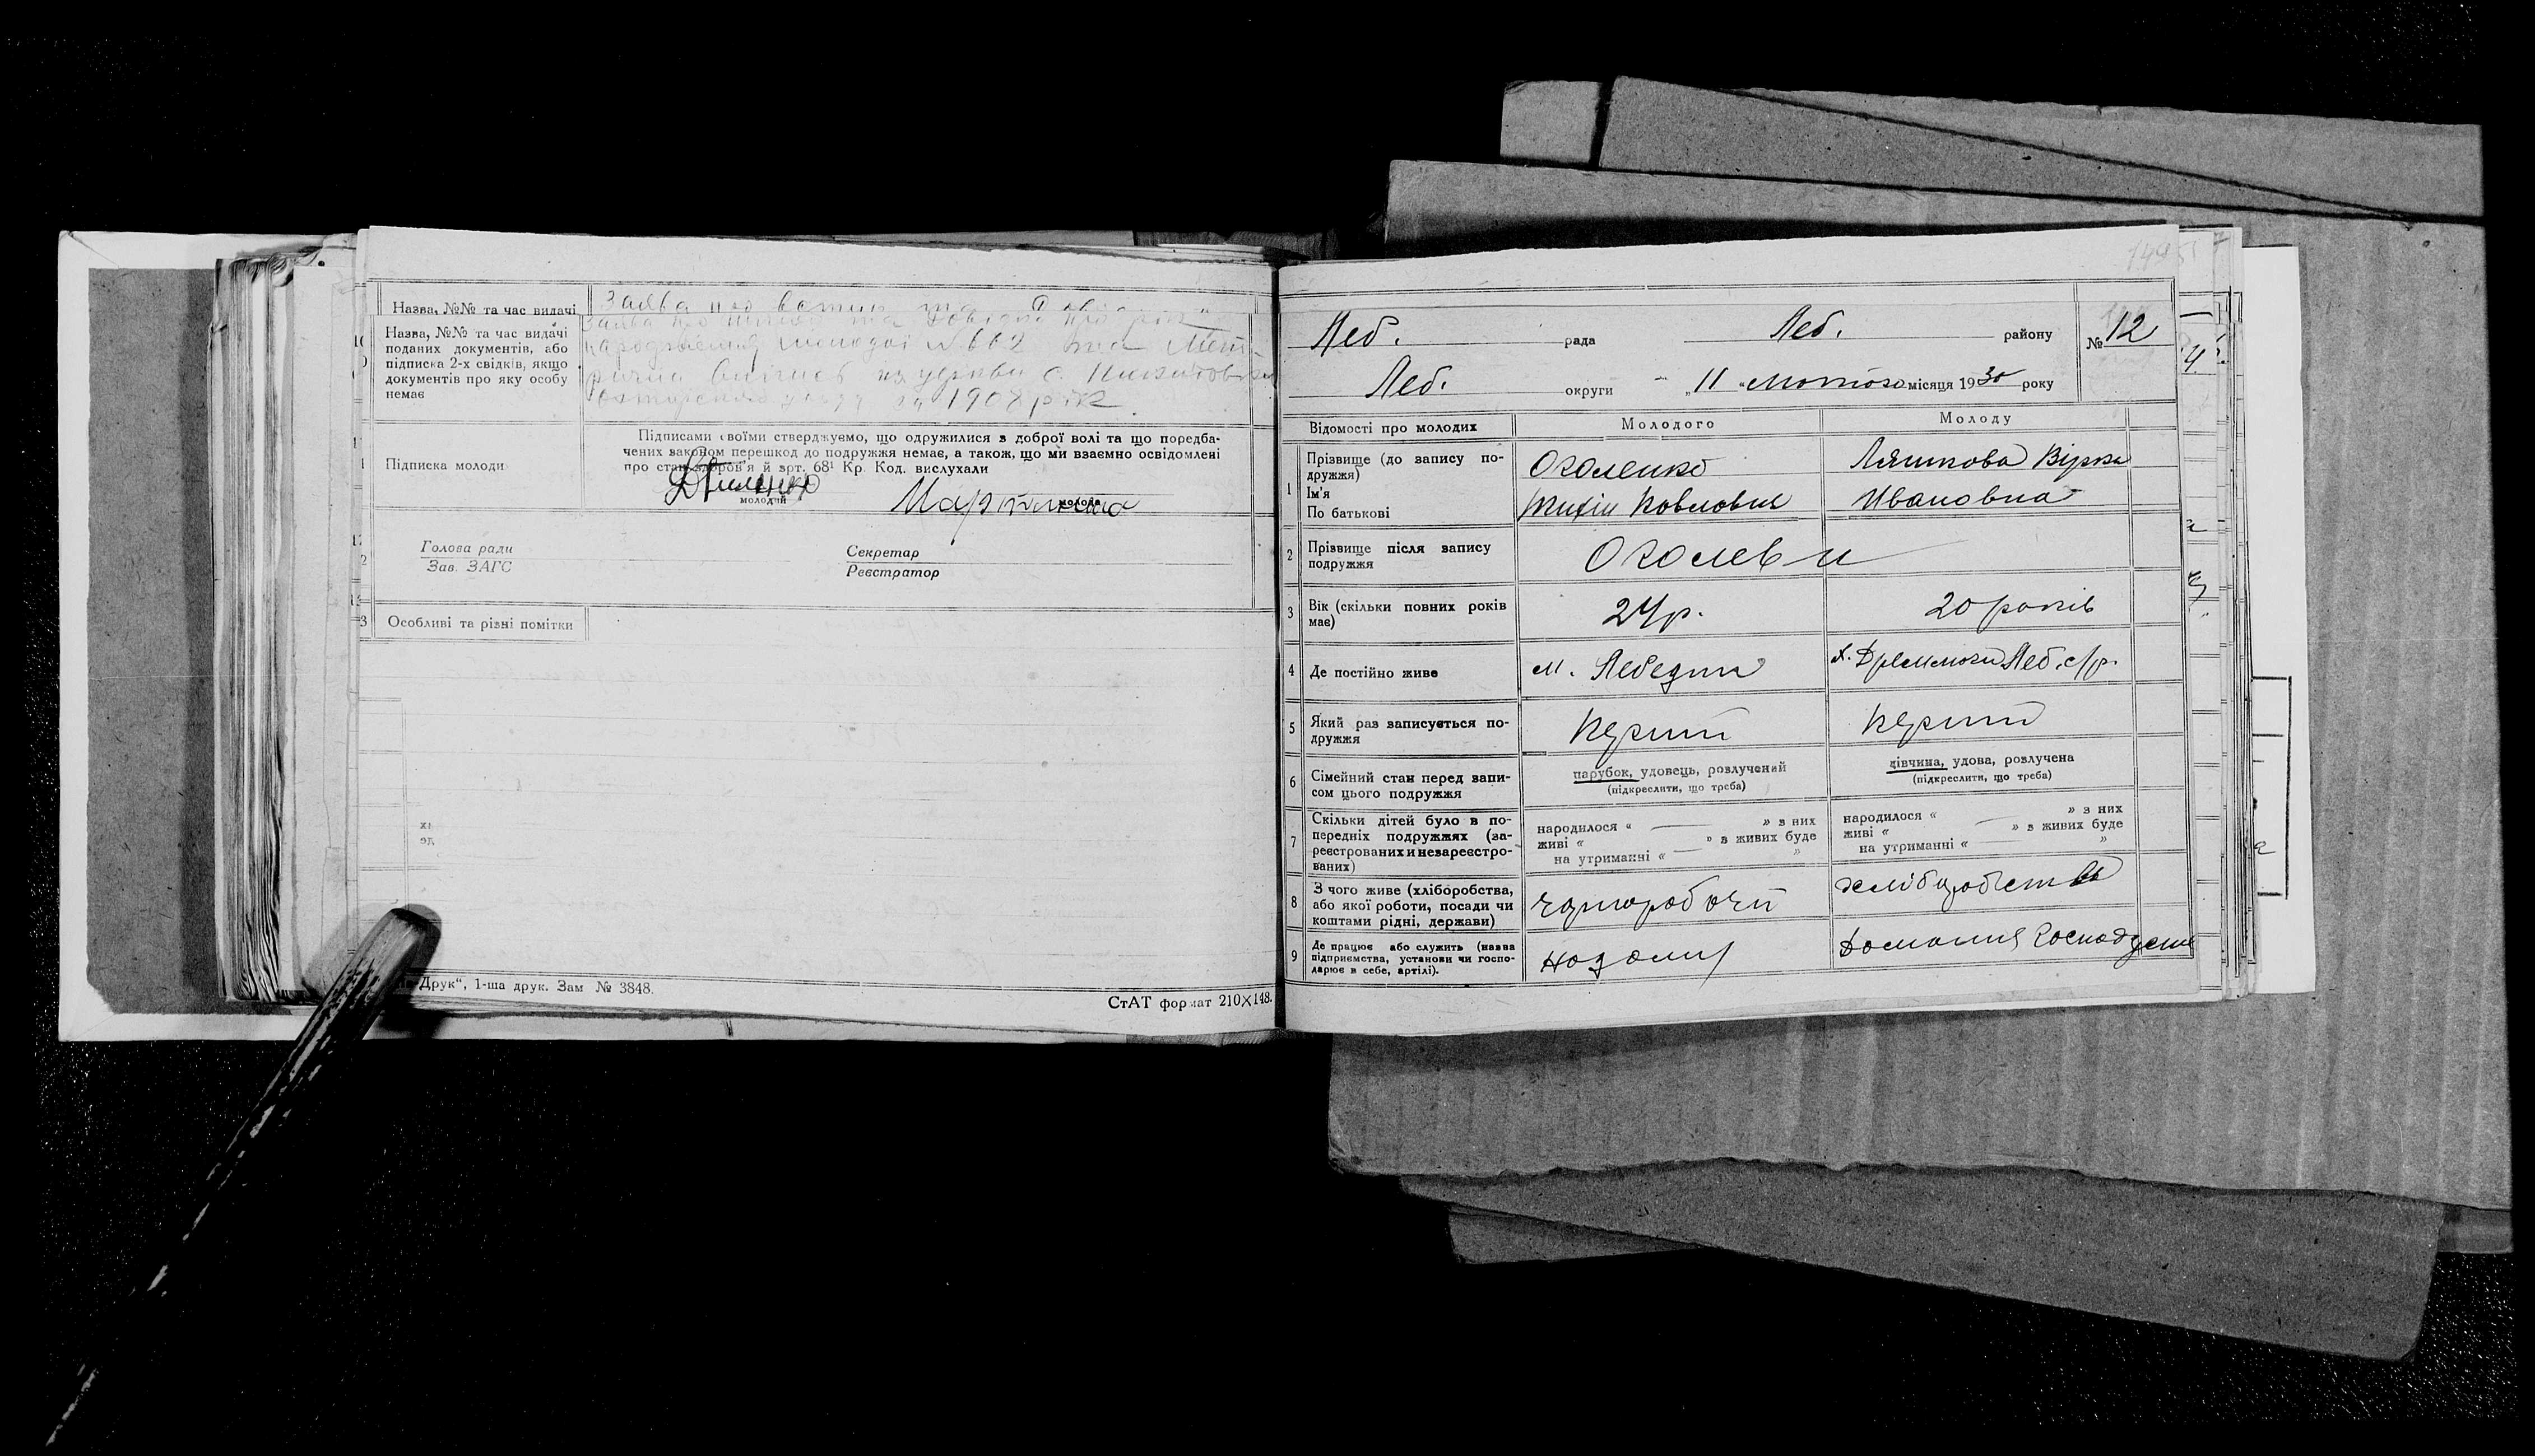 Назва, №№ та час видачі
Заява про
Назва, №№ та час видачі поданих документів, або підписка 2-х свідків, якщо документів про яку особу немає
Заява про та довідка про рік
народження молодої №662 та Мет-
рична виписка церкви с.
1908 рік
Підписка молоди
Підписами своїми стверджуємо, що одружилися з доброї волі та що передба-
чених законом перешкод до подружжя немає, а також, що ми взаємно освідомлені
про стан здоров'я й арт. 68¹ Кр. Код. вислухали
молодий
молода
Голова ради
Зав. ЗАГС
Секретар
Реєстратор
Особливі та різні помітки
Друк", 1-ша друк. Зам № 3848.
СтАТ формат 210×148.
Леб. рада Леб. району № 12
Леб. округи „11" лютого місяця 1930 року
Відомості про молодих Молодого Молоду
1 Прізвище (до запису по-
дружжя)
Ім'я
По батькові
Оголенко
Тихін Павлович
Ляшкова Вірка
Ивановна
2 Прізвище після запису
подружжя
Оголеви
3 Вік (скільки повних років
має)
24р.
20 років
4 Де постійно живе
м. Лебедин
х. Леб. с/р.
5 Який раз записується по-
дружжя
перший
перший
6 Сімейний стан перед запи-
сом цього подружжя
парубок, удовець, розлучений
(підкреслити, що треба)
дівчина, удова, розлучена
(підкреслити, що треба)
7 Скільки дітей було в по-
передніх подружжях (за-
реєстрованих и незареєстро-
ваних)
народилося « — » з них
живі « — » з живих буде
на утриманні « — »
народилося « — » з них
живі « — » з живих буде
на утриманні « — »
8 З чого живе (хліборобства,
або якої роботи, посади чи
коштами рідні, держави)
чорноробочий
хліборобство
9 Де працює або служить (назва
підприємства, установи чи госпо-
дарює в себе, артілі).
Домашня